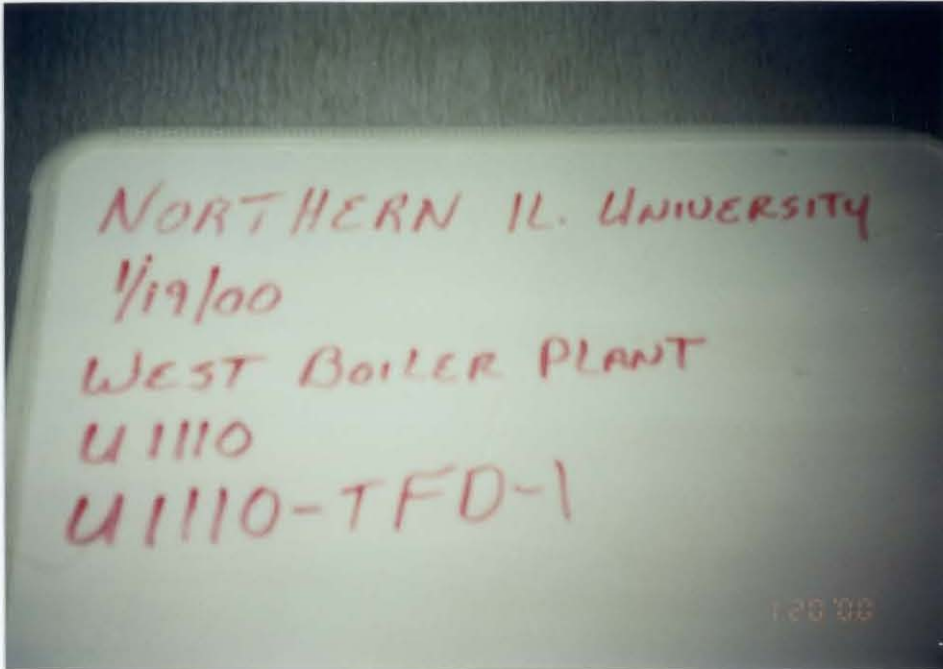 NORTHERN IL. UNIVERSITY
1/19/00
WEST BOILER PLANT
U1110
U1110-TFD-1
1 20 '00